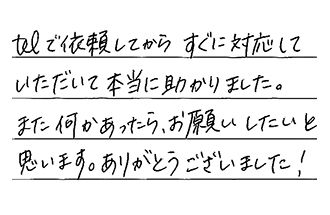 telで依頼してから すぐに対応して
いただいて本当に助かりました。
また何かあったら、お願いしたいと
思います。ありがとうございました!